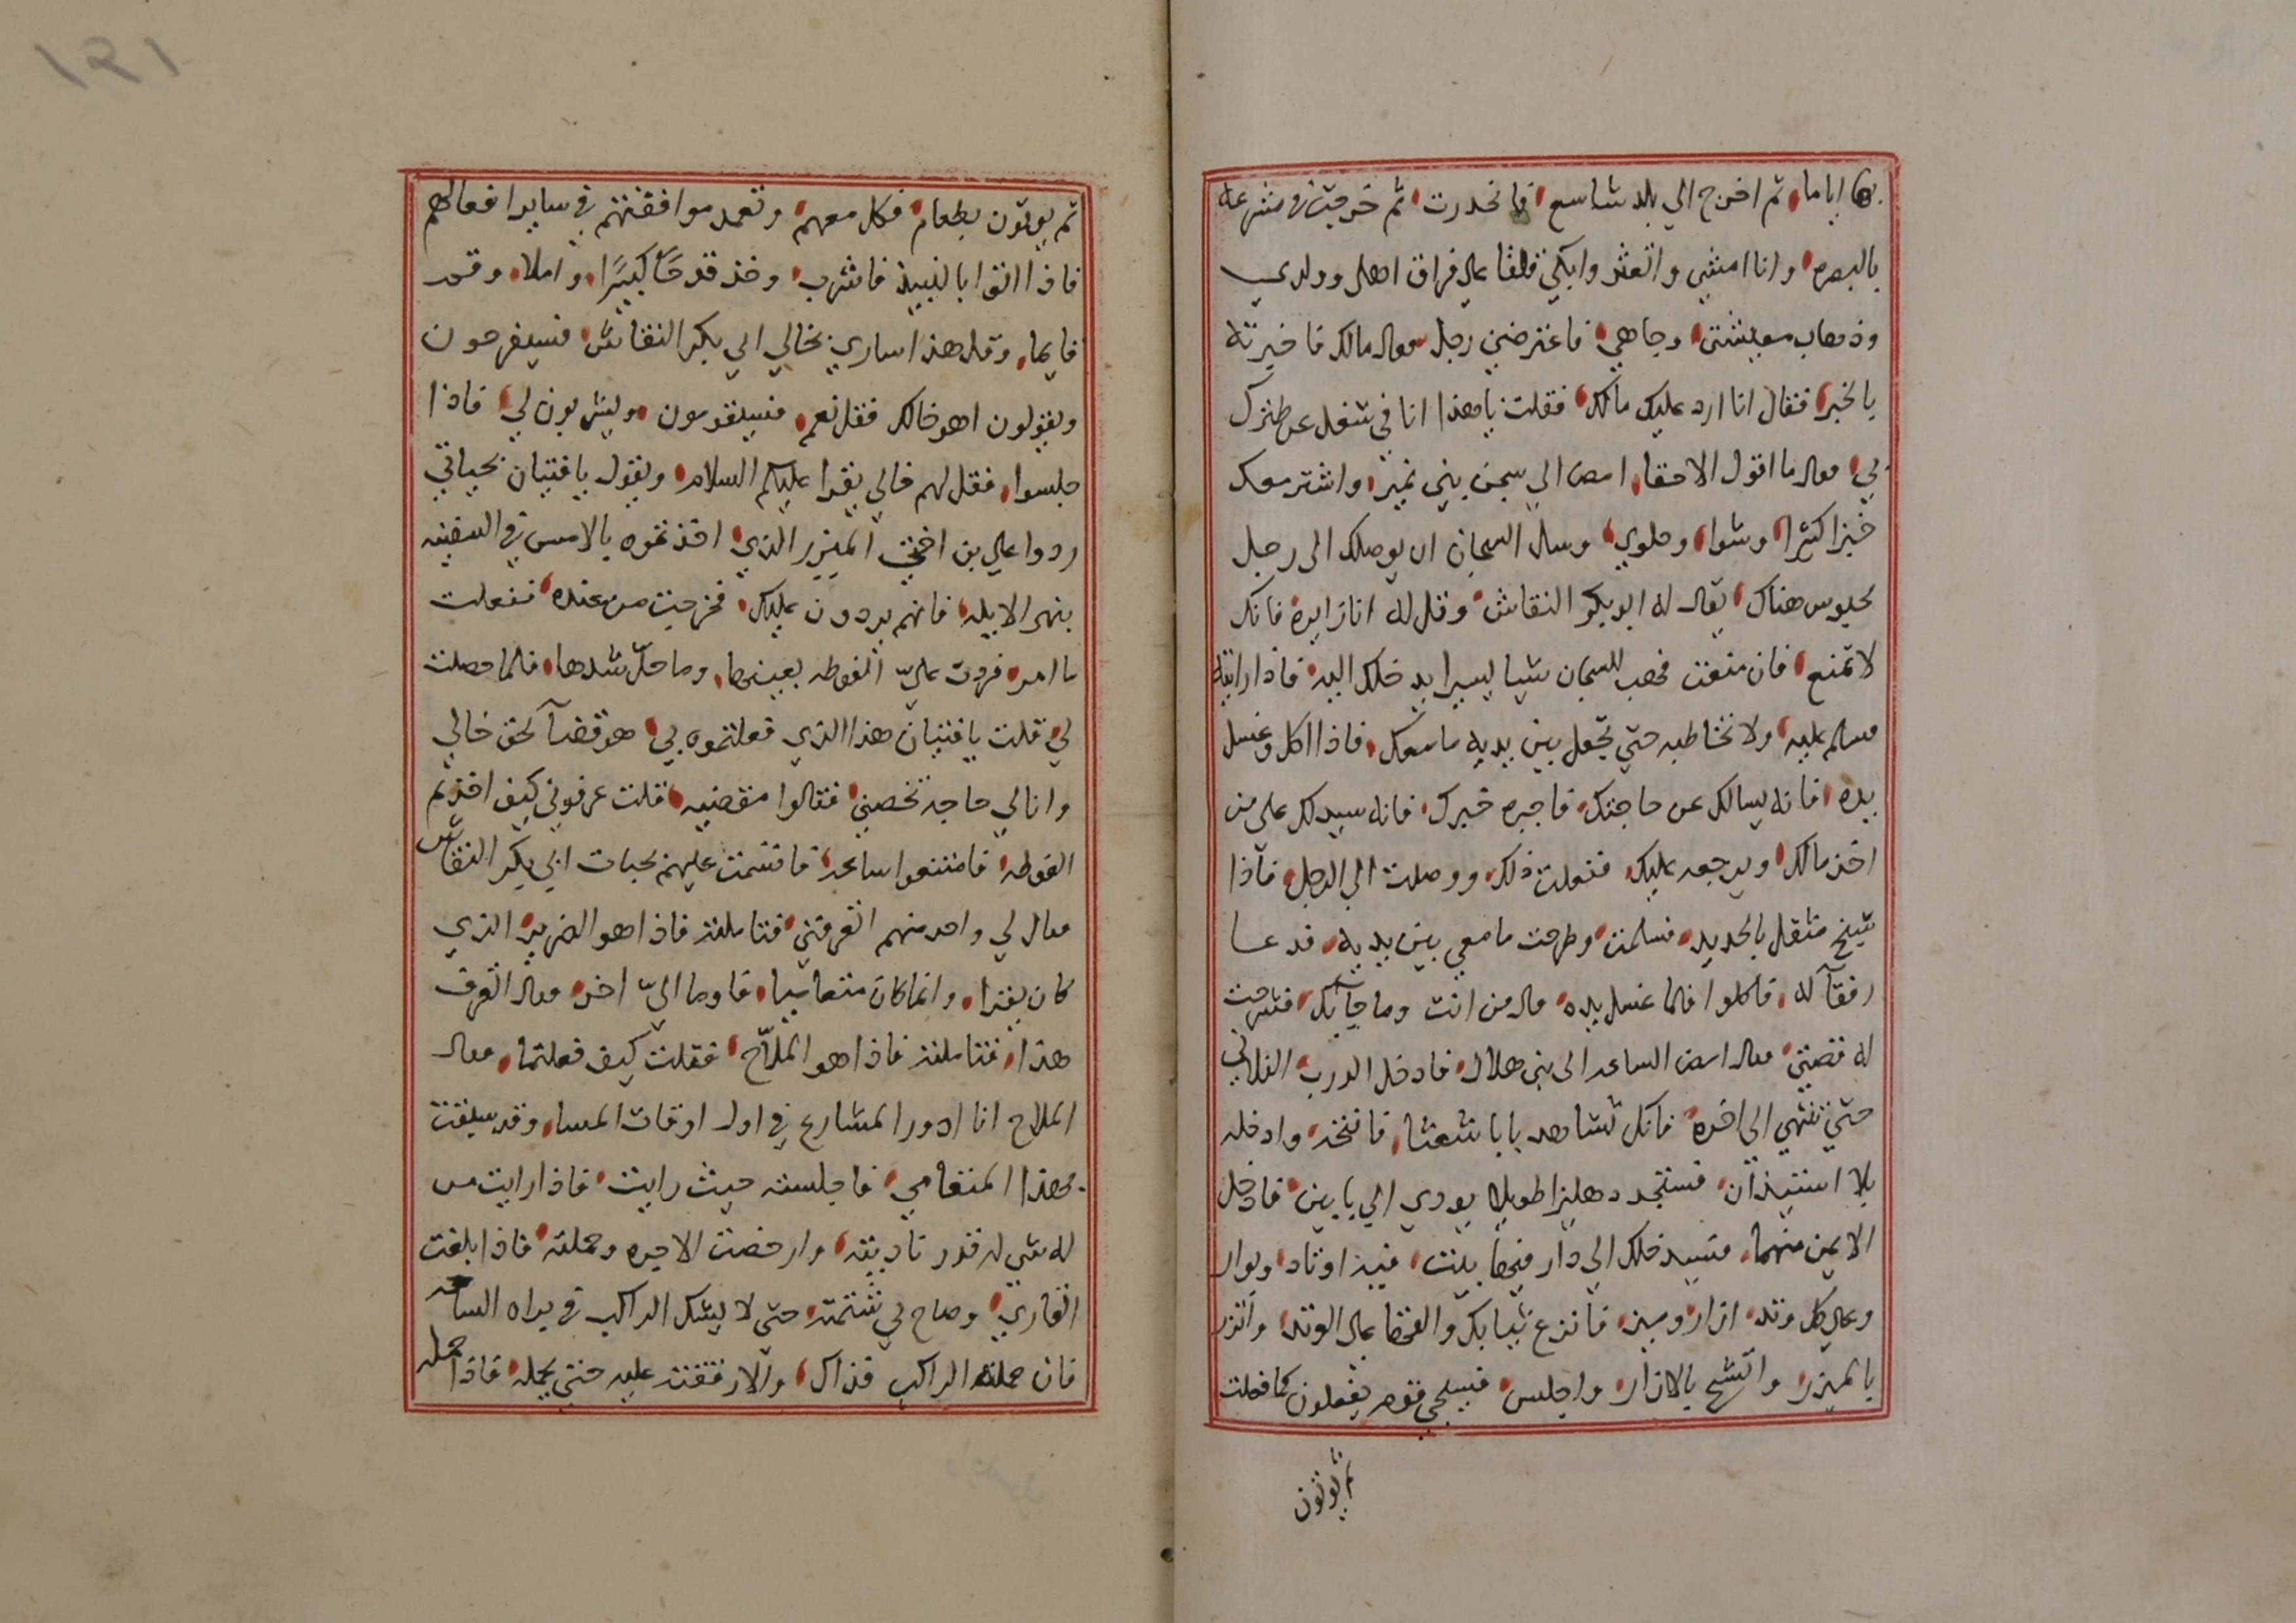 بها اياما، ثم اخرج الي بلد شاسع، فانحدرت، ثم خرجت في مشرعه
بالبصره، وانا امشي واتعثر وابكي قلقا على فراق اهلي وولدي
وذهاب معيشتي، وجاهي، فاعترضني رجل فقال مالك فاخبرته
بالخبر، فقال انا ارد عليك مالك، فقلت ياهذا انا في شغل عن طنزك
بي، فقال ما اقول الا حقا، امض الي سجن بني نمير، واشتر معك
خبزا كثيرا، وشوا، وحلوي، وسل السجان ان يوصلك الى رجل
محبوس هناك، يقال له ابو بكر النقاش، وقل له انا زايره فانك
لا تمنع، فان منعت فهب للسجان شيا يسيرا يدخلك اليه، فاذا رايته
فسلم عليه، ولا تخاطبه حتي تجعل بين يديه ما معك، فاذا اكل وغسل
يده، فانه يسالك عن حاجتك، فاخبره خبرك، فانه سيدلك على من
اخذ مالك، ويرجعه عليك، ففعلت ذلك، ووصلت الي الرجل، فاذا
شيخ مثقل بالحديد، فسلمت، وطرحت ما معي بين يديه، فدعا
رفقآ له، فاكلوا فلما غسل يده، قال من انت وما حاجتك، فشرحت
له قصتي، فقال امض الساعه الى بني هلال، فادخل الدرب الفلاني
حتي تنتهي الى اخره، فانك تشاهد بابا شعثا، فافتحه، وادخله
بلا استيذان، فستجد دهليزا طويلا يودي الي بابين، فادخل
الايمن منهما، فسيدخلك الي دار فيها بيت، فيه اوتاد، وبوار
وعلى كل وتد، ازار ومیزر، فانزع ثيابك والقها على الوتد، واتزر
بالميزر، واتشح بالازار، واجلس، فسيجي قوم يفعلون كما فعلت
ثم يوتون
١٢١
ثم يوتون بطعام، فكل معهم، وتعمد موافقتهم في ساير افعالهم
فاذا اتوا بالنبيذ فاشرب، وخذ قدحًا كبيرًا، واملاه وقم
قايما، وقل هذا ساري بخالي ابي بكر النقاش، فسيفرحون
ويقولون اهو خالك فقل نعم، فسيقومون، ويشربون لي، فاذا
جلسوا، فقل لهم خالي يقرا عليكم السلام، ويقول يا فتيان بحياتي
ردوا على بن اختي الميزر الذي، اخذتموه بالامس في السفينه
بنهر الابله، فانهم يردون عليك، فخرجت من عنده، ففعلت
ما امر، فردت عليّ الفوطه بعينها، وما حلّ شدها، فلما حصلت
لي قلت يا فتيان هذا الذي فعلتموه بي، هو قضآ لحق خالي
وانا لي حاجه تخصني، فقالوا مقضيه، قلت عرفوني كيف اخذتم
الفوطه، فامتنعوا ساعه، فاقسمت عليهم بحيات ابي بكر النقاش
فقال لي واحد منهم اتعرفني، فتاملته فاذا هو الضرير، الذي
كان يقرا، وانما كان متعاميا، فاوما اليّ اخر، فقال اتعرف
هذا، فتاملته فاذا هو الملّاح، فقلت كيف فعلتما، فقال
الملاح انا ادور المشارع في اول اوقات المسا، وقد سبقت
بهذا المتعامي، فاجلسته حيث رايت، فاذا رايت من
له شي له قدر ناديته، وارخصت الاجره وحملته، فاذا بلغت
القاري، وصاح بي شتمته، حتي لا يشك الراكب في براه الساحه
فان حمله الراكب فذاك، والا رققت عليه حتي يحمله، فاذا حمله